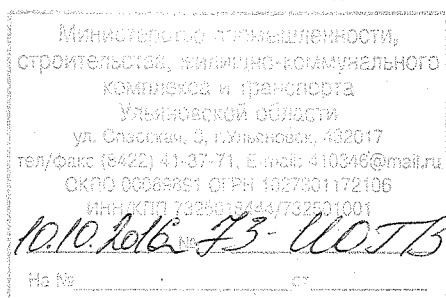 Министерство промышленности,
строительства, жилищно-коммунального
комплекса и транспорта
Ульяновской области
ул. Спасская, 3, г.Ульяновск, 432017
тел/факс (8422) 41-37-71, E-mail: 410346@mail.ru
ОКПО 00089891 ОГРН 1027301172106
ИНН/КПП 7325018444/732501001
10.10.2016 № 73-ИОГВ
На № от